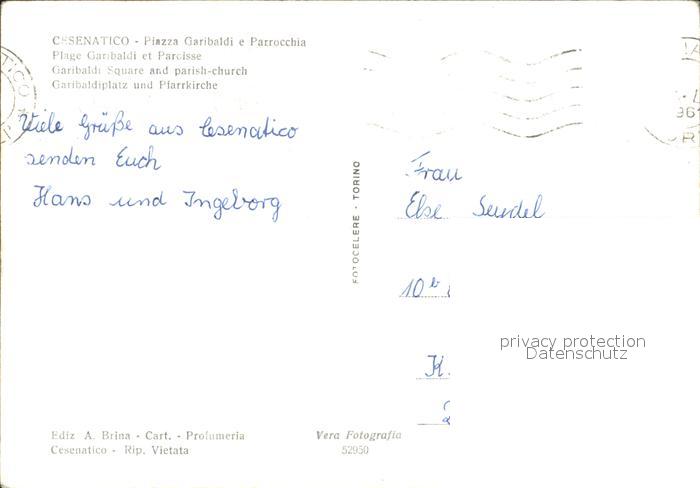 CESENATICO - Piazza Garibaldi e Parrocchia
Plage Garibaldi et Paroisse
Garibaldi Square and parish-church
Garibaldiplatz und Pfarrkirche
Viele Grüße aus Cesenatico
senden Euch
Hans und Ingeborg
FOTOCELERE - TORINO
Frau
Else
10 b
K.
privacy protection
Datenschutz
Ediz A. Brina - Cart. - Profumeria
Cesenatico - Rip. Vietata
Vera Fotografia
52950